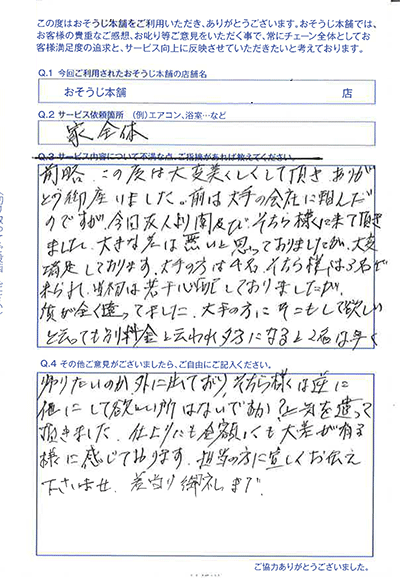 この度はおそうじ本舗をご利用いただき、ありがとうございます。おそうじ本舗では、
お客様の貴重なご感想、お叱り等ご意見をいただく事で、常にチェーン全体としてお
客様満足度の追求と、サービス向上に反映させていただきたいと考えております。
Q.1 今回ご利用されたおそうじ本舗の店舗名
おそうじ本舗 店
Q.2 サービス依頼箇所 (例)エアコン、浴室…など
家全体
Q.3 サービス内容について不満な点、ご指摘があれば教えてください。
前略、この度は大変美くしくして頂き ありが
とう御座いました。前は大手の会社に頼んだ
のですが、今回友人より聞及び、そちら様に来て頂き
ました。大きな差は無いと思っておりましたが、大変
満足しております。大手の方は4名、そちら様は3名で
来られ、当初は若干心配しておりましたが、
質が全く違ってました。大手の方に そこもして欲しい
と云っても別料金と云われ 夕方になると2名は早く
Q.4 その他ご意見がございましたら、ご自由にご記入ください。
帰りたいのか外に出ており、そちら様は逆に
他にして欲しい所はないですか?と気を遣って
頂きました。仕上りにも金額にも大差が有る
様に感じております。担当の方に宜しくお伝え
下さいませ。差当り御礼まで。
ご協力ありがとうございました。